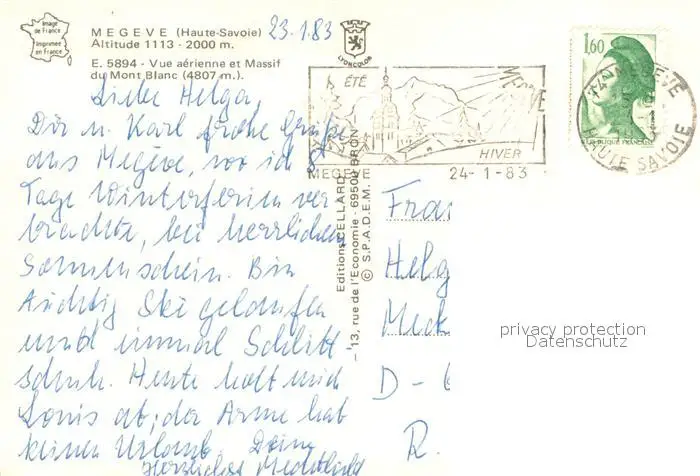 Image de France
Imprimée en France
MEGEVE (Haute-Savoie) 23.1.83
Altitude 1113 - 2000 m.
E. 5894 - Vue aérienne et Massif
du Mont Blanc (4807 m.).
LYONCOLOR
Liebe Helga,
Dir u. Karl frohe Grüße
aus Megève, wo ich 8
Tage Winterferien ver
brachte, bei herrlichem
Sonnenschein. Bin
tüchtig Ski gelaufen
und einmal Schlitt
schuh. Heute holt mich
Louis ab; der Arme hat
keinen Urlaub. Deine
Herzlichst Mechthild
Editions CELLARD
- 13, rue de l'Economie - 69500 BRON
© S.P.A.D.E.M.
ÉTÉ
MEGEVE
HIVER
MEGEVE 24-1-83
1,60
REPUBLIQUE FRANÇAISE
74 MEGEVE
HAUTE SAVOIE
Frau
Helg
Meck
D - 6
R.
privacy protection
Datenschutz